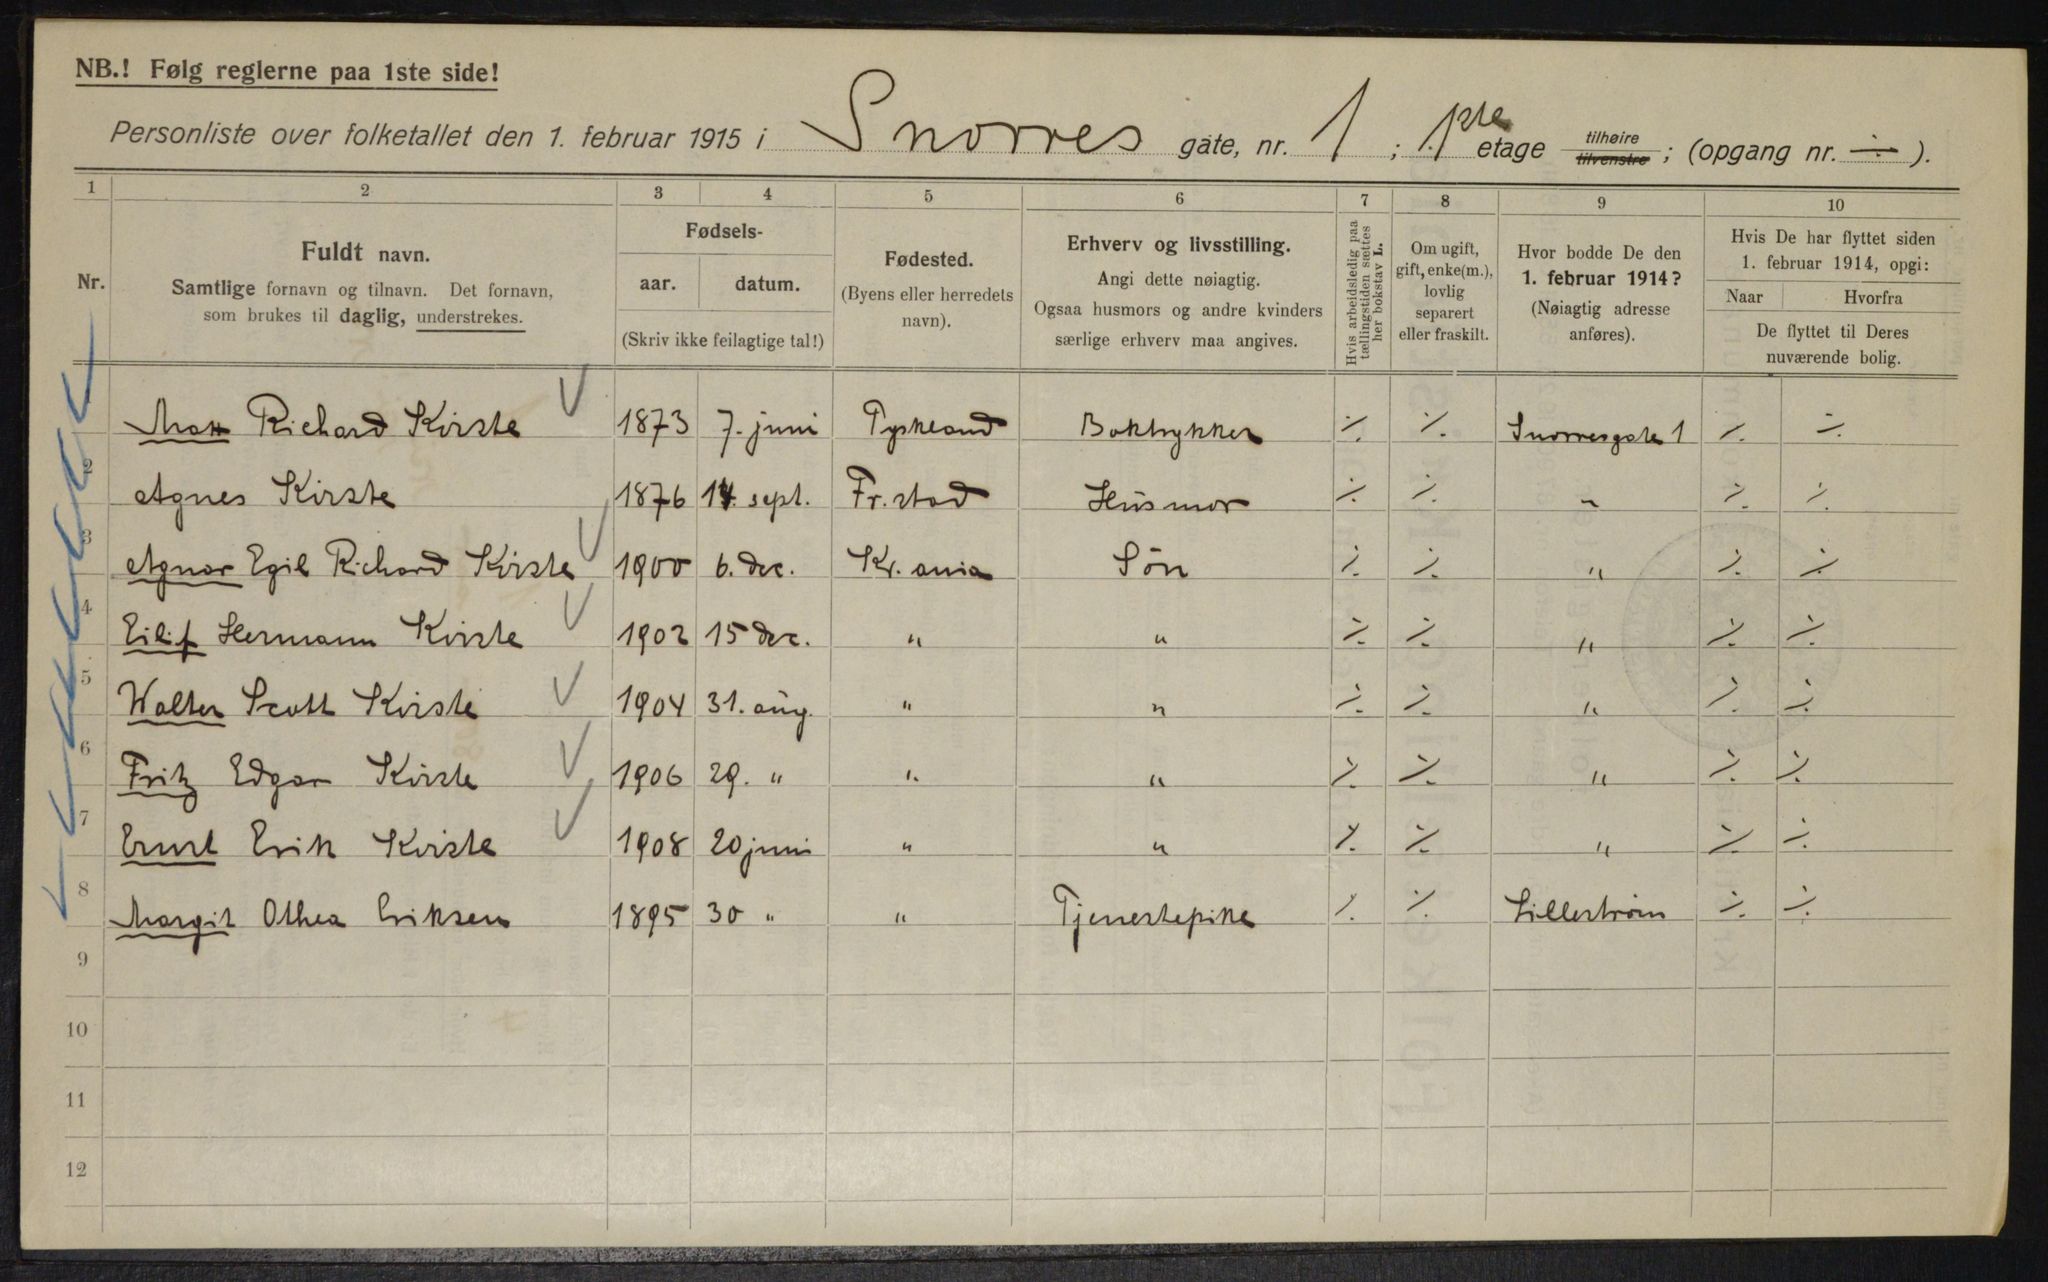 NB.! Følg reglerne paa 1ste side!
Personliste over folketallet den 1. februar 1915 i Snorres gate, nr. 1 ; 1ste etage tilhøire tilvenstre ; (opgang nr. ÷ ).
1 2 3 4 5 6 7 8 9 10
Nr.
Fuldt navn.
Samtlige fornavn og tilnavn. Det fornavn,
som brukes til daglig, understrekes.
Fødsels-
aar. datum.
(Skriv ikke feilagtige tal!)
Fødested.
(Byens eller herredets
navn).
Erhverv og livsstilling.
Angi dette nøiagtig.
Ogsaa husmors og andre kvinders
særlige erhverv maa angives.
Hvis arbeidsledig paa
tællingstiden sættes
her bokstav L.
Om ugift,
gift, enke(m.),
lovlig
separert
eller fraskilt.
Hvor bodde De den
1. februar 1914?
(Nøiagtig adresse
anføres).
Hvis De har flyttet siden
1. februar 1914, opgi:
Naar Hvorfra
De flyttet til Deres
nuværende bolig.
Richard Kirste 1873 7. juni Tyskland Boktrykker ٪ ٪ Snorresgate 1 ٪ ٪
2 Agnes Kirste 1876 14. sept. Fr.stad Husmor ٪ ٪ " ٪ ٪
3 Agnar Egil Richard Kirste 1900 6. dec. Kr.ania Sön ٪ ٪ " ٪ ٪
4 Eilif Hermann Kirste 1902 15 dec. " " ٪ ٪ " ٪ ٪
5 Walter Scott Kirste 1904 31. aug. " " ٪ ٪ " ٪ ٪
6 Fritz Edgar Kirste 1906 29. " " " ٪ ٪ " ٪ ٪
7 Ernst Erik Kirste 1908 20 juni " " ٪ ٪ " ٪ ٪
8 Margit Othea Eriksen 1895 30 " " Tjenestepike ٪ ٪ Lillestrøm ٪ ٪
9
10
11
12